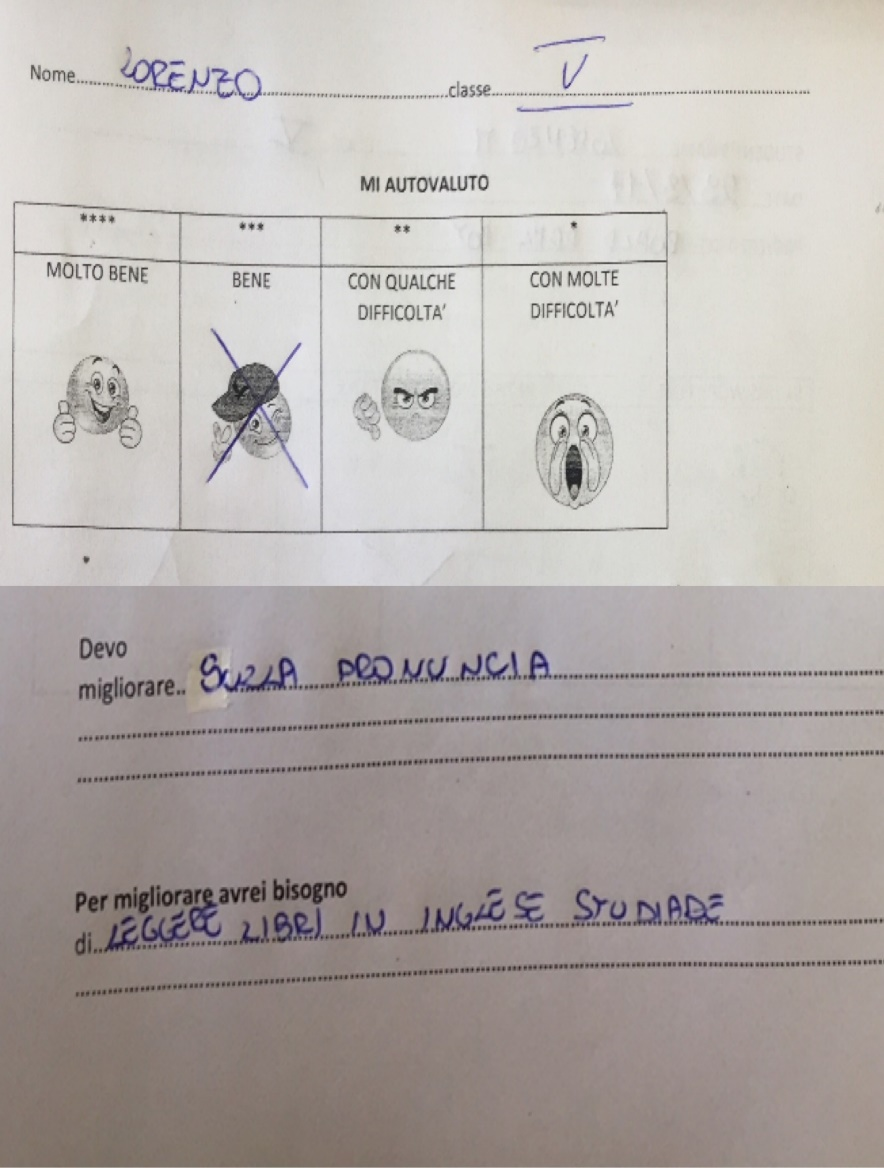 Nome LORENZO classe V
MI AUTOVALUTO
**** *** ** *
MOLTO BENE BENE CON QUALCHE DIFFICOLTA’ CON MOLTE DIFFICOLTA’
Devo
migliorare.. SULLA PRONUNCIA
Per migliorare avrei bisogno
di... LEGGERE LIBRI IN INGLESE STUDIARE